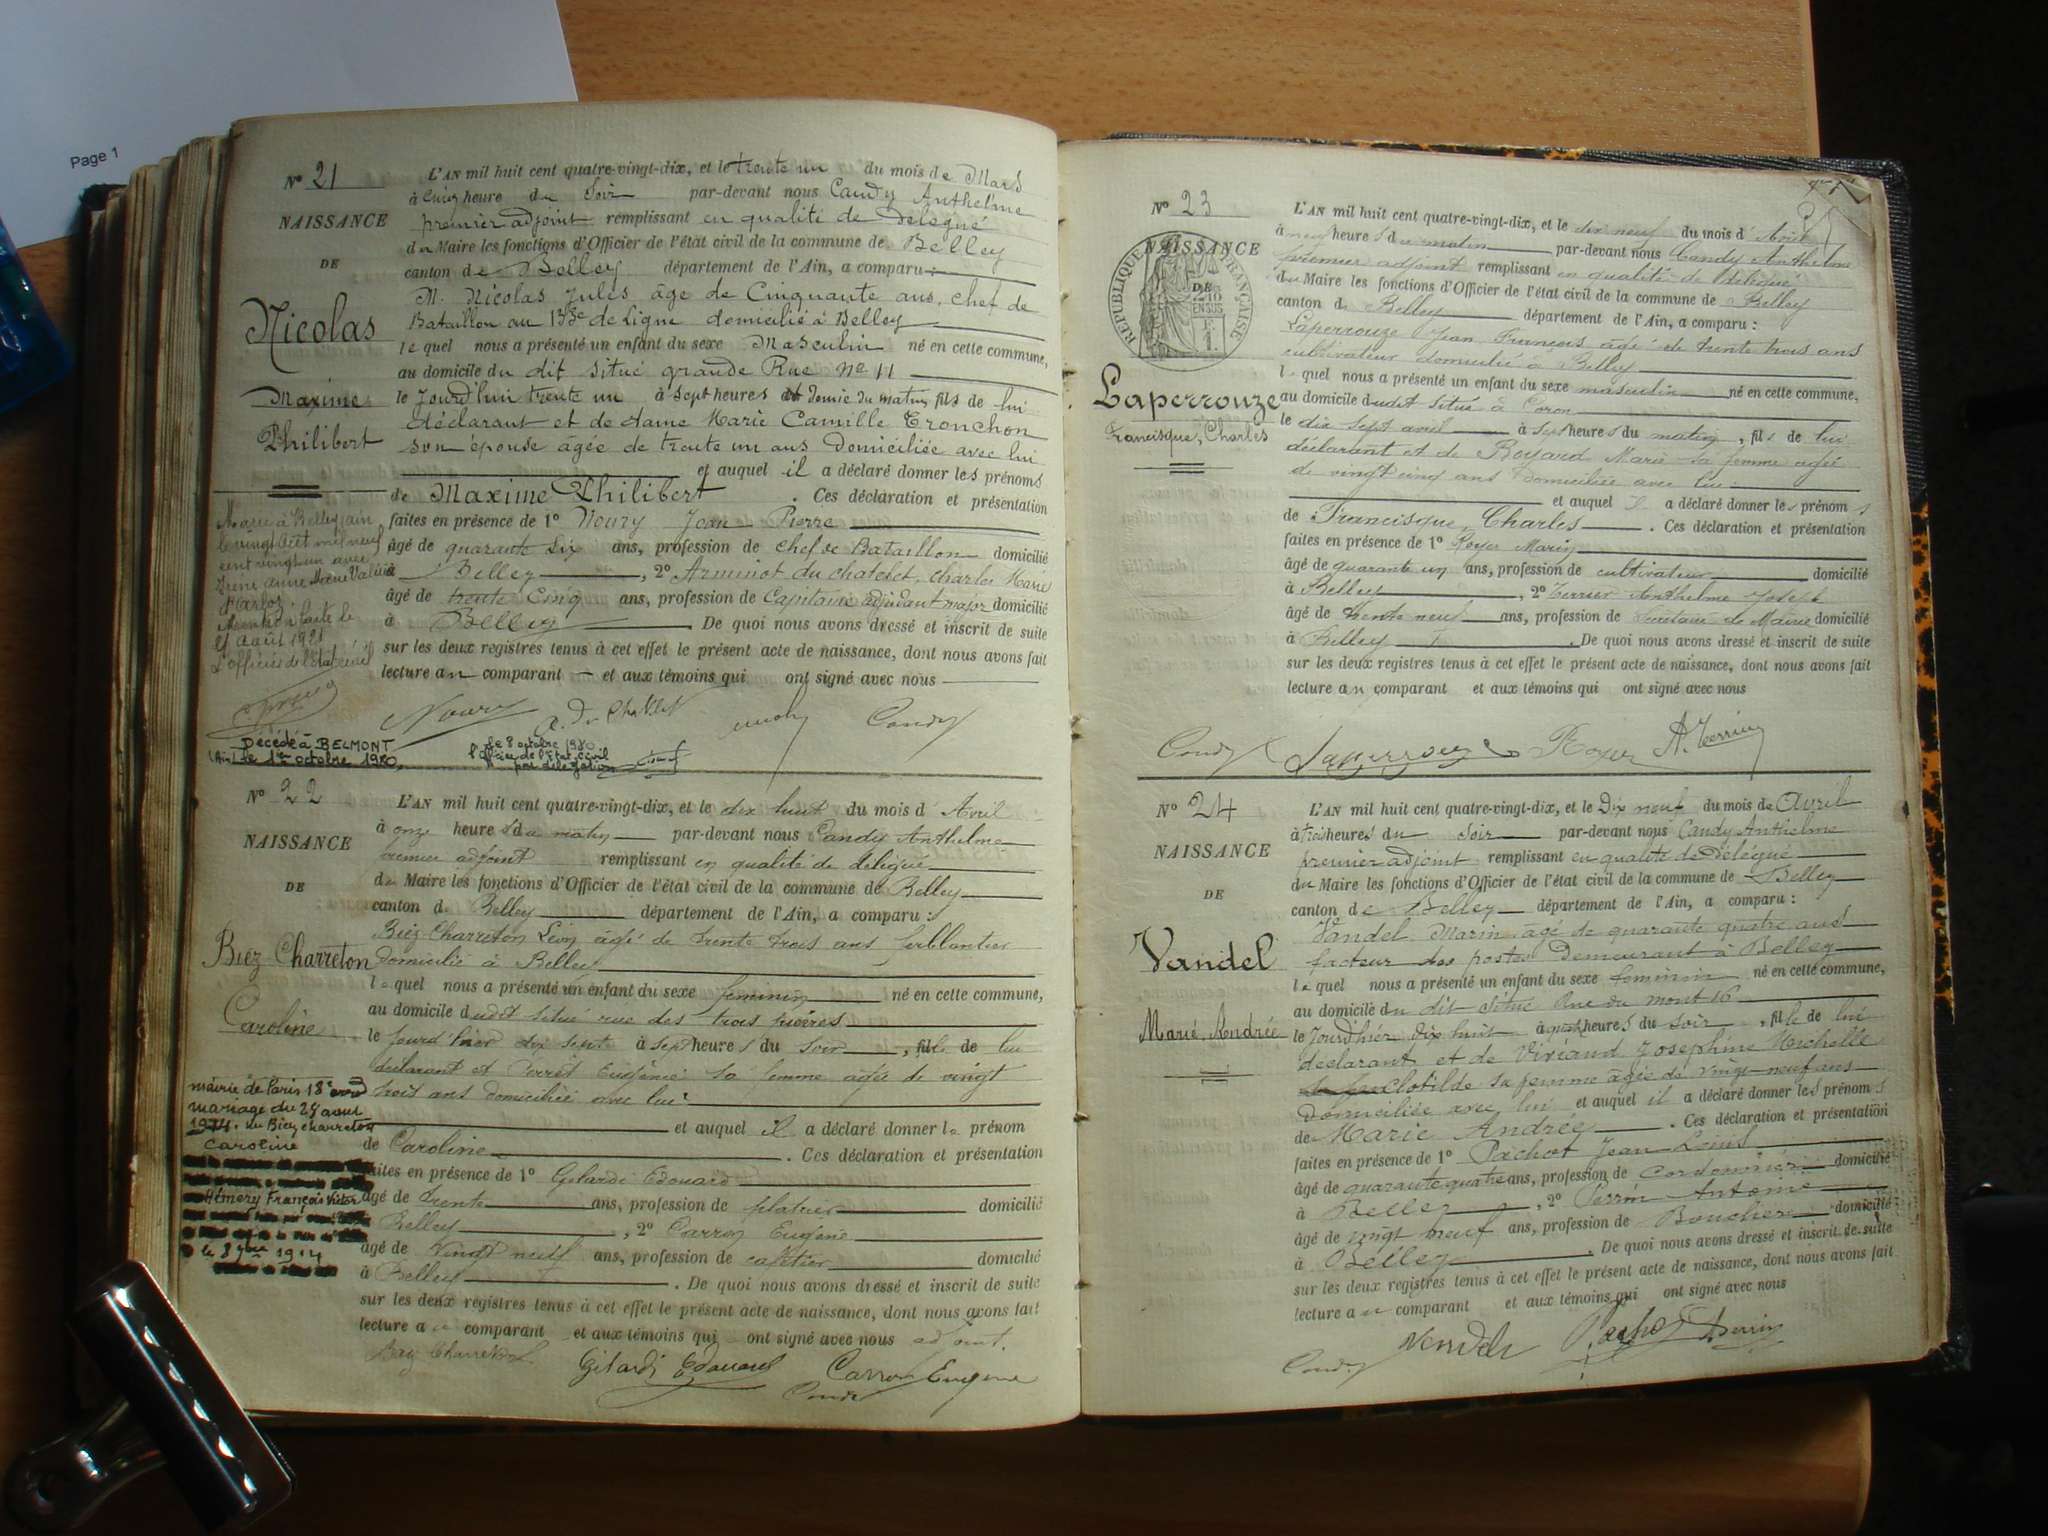 Page 1
N° 21
NAISSANCE
DE
Nicolas
Maxime
Philibert
L'AN mil huit cent quatre-vingt-dix, et le trente un du mois de Mars
à cinq heure du Soir par-devant nous Candy Anthelme
premier adjoint remplissant en qualité de délégué
du Maire les fonctions d'Officier de l'état civil de la commune de Belley
canton de Belley département de l'Ain, a comparu :
M. Nicolas Jules âgé de Cinquante ans, chef de
Bataillon au 133e de Ligne domicilié à Belley
lequel nous a présenté un enfant du sexe Masculin né en cette commune,
au domicile du dit situé grande Rue No 11
le Jourd'hui trente un à sept heures et demie du matin, fils de lui
déclarant et de dame Marie Camille Tronchon
son épouse âgée de trente un ans domiciliée avec lui
et auquel il a déclaré donner les prénoms
de Maxime Philibert . Ces déclaration et présentation
faites en présence de 1° Noury Jean Pierre
âgé de quarante six ans, profession de chef de Bataillon domicilié
à Belley , 2° Arminot du chatelet, charles Marie
âgé de trente Cinq ans, profession de Capitaine adjudant major domicilié
à Belley . De quoi nous avons dressé et inscrit de suite
sur les deux registres tenus à cet effet le présent acte de naissance, dont nous avons fait
lecture au comparant et aux témoins qui ont signé avec nous
Marié à Belley, ain
le vingt Août mil neuf
cent vingt un avec
Irène Anne Marie
Mention faite le
21 Août 1921
L'officier de l'état civil
Noury A. Du Chatelet Candy
Décédé à BELMONT
(Ain) le 1er octobre 1980.
le 8 octobre 1980
l'officier de l'Etat Civil
par délégation
N° 22
NAISSANCE
DE
Biez-Charreton
Caroline
L'AN mil huit cent quatre-vingt-dix, et le dix huit du mois d'Avril
à onze heures du matin par-devant nous Candy Anthelme
premier adjoint remplissant en qualité de délégué
du Maire les fonctions d'Officier de l'état civil de la commune de Belley
canton de Belley département de l'Ain, a comparu :
Biez-Charreton Léon âgé de trente trois ans ferblantier
domicilié à Belley
lequel nous a présenté un enfant du sexe féminin né en cette commune,
au domicile dudit situé rue des trois
le jourd'hier dix sept à sept heures du soir , fille de lui
déclarant et Perret Eugénie sa femme âgée de vingt
trois ans domiciliée avec lui
et auquel il a déclaré donner le prénom
de Caroline . Ces déclaration et présentation
faites en présence de 1° Gilardi Edouard
âgé de trente ans, profession de platrier domicilié
Belley , 2° Carron Eugène
âgé de vingt neuf ans, profession de cafetier domicilié
à Belley . De quoi nous avons dressé et inscrit de suite
sur les deux registres tenus à cet effet le présent acte de naissance, dont nous avons fait
lecture au comparant et aux témoins qui ont signé avec nous adjoint.
mairie de Paris 18e
mariage du 28 aout
1914. de Biez charreton
Caroline
Hémery François Victor
le 8 9bre 1914
Biez Charreton Gilardi Edouard Carron Eugène
Candy
N° 23
NAISSANCE
DE
RÉPUBLIQUE FRANÇAISE
Laperrouze
Francisque, Charles
L'AN mil huit cent quatre-vingt-dix, et le dix neuf du mois d'Avril
à neuf heures du matin par-devant nous Candy Anthelme
premier adjoint remplissant en qualité de délégué
du Maire les fonctions d'Officier de l'état civil de la commune de Belley
canton de Belley département de l'Ain, a comparu :
Laperrouze Jean François âgé de trente trois ans
cultivateur domicilié à Belley
lequel nous a présenté un enfant du sexe masculin né en cette commune,
au domicile dudit situé à Coron
le dix sept avril à sept heures du matin , fils de lui
déclarant et de Boyard Marie sa femme âgée
de vingt cinq ans domiciliée avec lui
et auquel il a déclaré donner les prénoms
de Francisque Charles . Ces déclaration et présentation
faites en présence de 1° Royer Marin
âgé de quarante un ans, profession de cultivateur domicilié
à Belley , 2° Terrier Anthelme Joseph
âgé de trente neuf ans, profession de Secrétaire de Mairie domicilié
à Belley . De quoi nous avons dressé et inscrit de suite
sur les deux registres tenus à cet effet le présent acte de naissance, dont nous avons fait
lecture au comparant et aux témoins qui ont signé avec nous
Candy Laperrouze Royer A. Terrier
N° 24
NAISSANCE
DE
Vandel
Marie, Andrée
L'AN mil huit cent quatre-vingt-dix, et le Dix neuf du mois de Avril
à trois heures du Soir par-devant nous Candy Anthelme
premier adjoint remplissant en qualité de Délégué
du Maire les fonctions d'Officier de l'état civil de la commune de Belley
canton de Belley département de l'Ain, a comparu :
Vandel Marin âgé de quarante quatre ans
facteur des postes Demeurant à Belley
lequel nous a présenté un enfant du sexe féminin né en cette commune,
au domicile du dit situé Rue du mont 16
le Jourd'hier dix huit à quatre heures du soir , fille de lui
déclarant et de Viviand Joséphine Michelle
Clotilde sa femme âgée de vingt-neuf ans
Domiciliée avec lui et auquel il a déclaré donner les prénoms
de Marie Andrée . Ces déclaration et présentation
faites en présence de 1° Pachot Jean Louis
âgé de quarante quatre ans, profession de cordonnier domicilié
à Belley , 2° Perrin Antoine
âgé de vingt neuf ans, profession de Boucher domicilié
à Belley . De quoi nous avons dressé et inscrit de suite
sur les deux registres tenus à cet effet le présent acte de naissance, dont nous avons fait
lecture au comparant et aux témoins qui ont signé avec nous
Candy Vandel Pachot Perrin